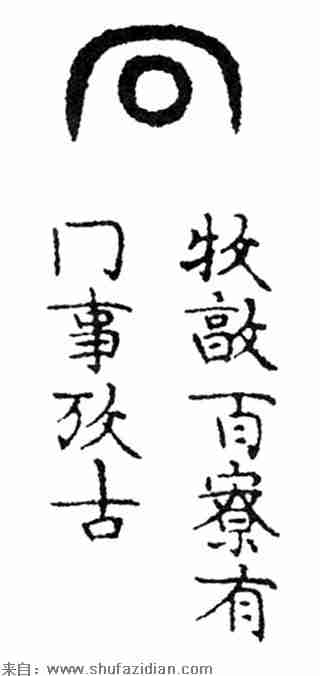 牧敦百寮有
冂事攷古
来自：www.shufazidian.com